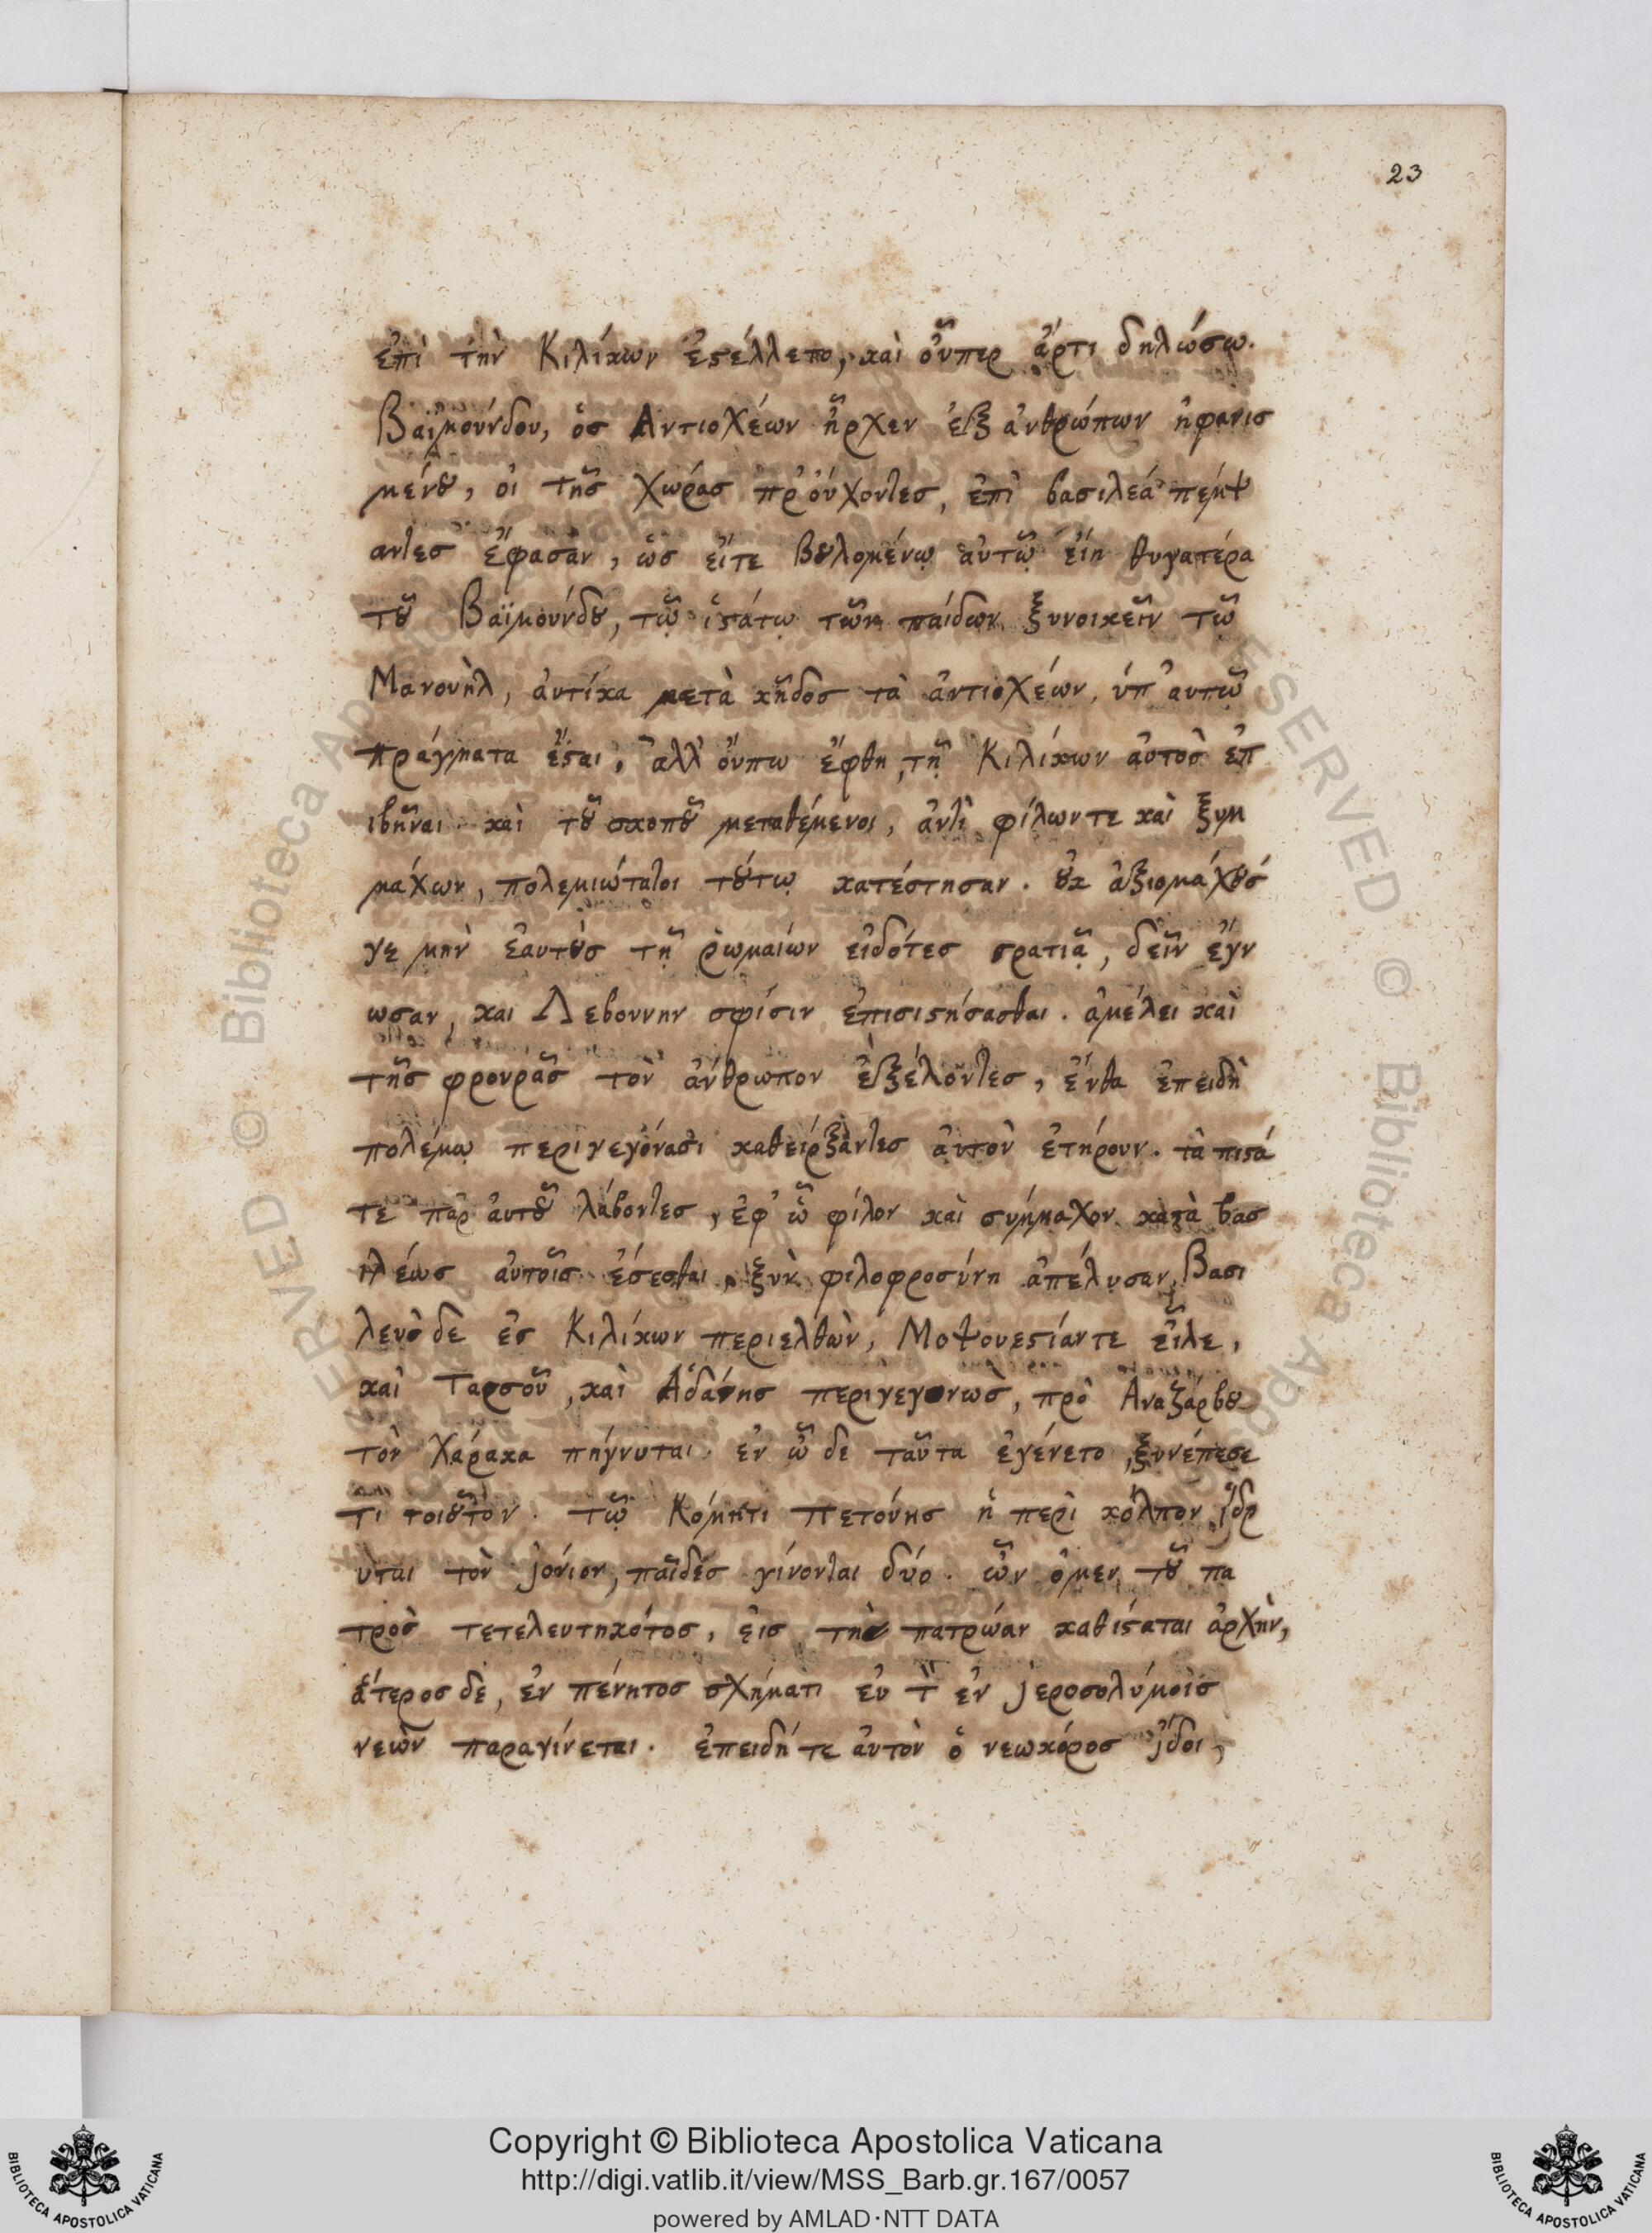 23
ἐπὶ τὴν Κιλίκων ἐϛέλλετο, καὶ οὗπερ ἄρτι δηλώσω.
Βαϊμούνδου, ὃς Αντιοχέων ἦρχεν ἐξ ἀνθρώπων ἠφανισ
μένȣ, οἱ τῆς χώρας πρ'ούχοντες, ἐπὶ βασιλεά πέμψ
αντες ἔφασαν, ὡς εἴτε βȣλομένῳ αὐτῷ εἴη θυγατέρα
τȣ͂ Βαϊμούνδȣ, τῷ ἱϛάτῳ τῶν παίδων ξυνοικεῖν τῷ
Μανουὴλ, ἀυτίκα μετὰ κῆδος τὰ ἀντιοχέων, ὑπ' αυτῷ
πράγματα ἔϛαι, ἀλλ' ὄυπω ἔφθη, τῇ Κιλίκων αὐτὸς ἐπ
ιβῆναι καὶ τȣ͂ σκοπȣ͂ μεταθέμενοι, ἀντὶ φίλωντε καὶ ξυμ
μάχων, πολεμιώτατοι τȣ́τῳ κατέστησαν. ȣ̓κ ἀξιομάχȣσ
γε μὴν ἑαυτȣ̀ς τῇ ῥωμαίων εἰδότες ϛρατιᾷ, δεῖν ἔγν
ωσαν, και Λεβουνην σφίσιν ἐπισιϛήσασθαι. ἀμέλει καὶ
τῆς φρουρᾶς τὸν ἄνθρωπον ἐξέλόντες, ἔνθα ἐπειδὴ
πολέμῳ περιγεγόνασι καθείρξαντες ἀυτὸν ἐτήρουν. τὰ πιϛά
τε παρ' ἀυτȣ͂ λάβοντες, ἐφ' ᾧ φίλον καὶ σύμμαχον κατὰ βασ
ιλέως ἀυτοῖς ἔσεσθαι, ξὺν φιλοφροσύνη ἀπέλυσαν. Βασι
λεὺς δε ἐς Κιλίκων περιελθὼν, Μοψουεϛίαντε εἷλε,
καὶ Ταρσοῦ, καὶ Ἀδάνης περιγεγονωὸς, πρὸ Αναζάρβȣ
τὸν χάρακα πήγνυται. ἐν ᾧ δε ταῦτα ἐγένετο, ξυνέπεσε
τὶ τοιȣ͂τον. τῷ Κόμητι Πετούνης ἡ περὶ κόλπον ἵδρ
ύται τὸν ἰόνιον, παῖδες γίνονται δύο. ὧν ὁμεν τȣ͂ πα
τρὸς τετελευτηκότος, εἰς τὴν πατρώαν καθίϛαται ἀρχὴν,
ἅτερος δὲ, ἐν πένητος σχήματι ἐν τ ἐν ἱεροσολύμοις
νεὼν παραγίνεται. ἐπειδή τε ἀυτὸν ὁ νεωκόρος ἴδοι,
Copyright © Biblioteca Apostolica Vaticana
http://digi.vatlib.it/view/MSS_Barb.gr.167/0057
powered by AMLAD·NTT DATA